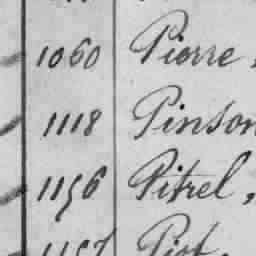 1060 Pierre
1118 Pinson
1156 Pitrel,
1157 Piot.